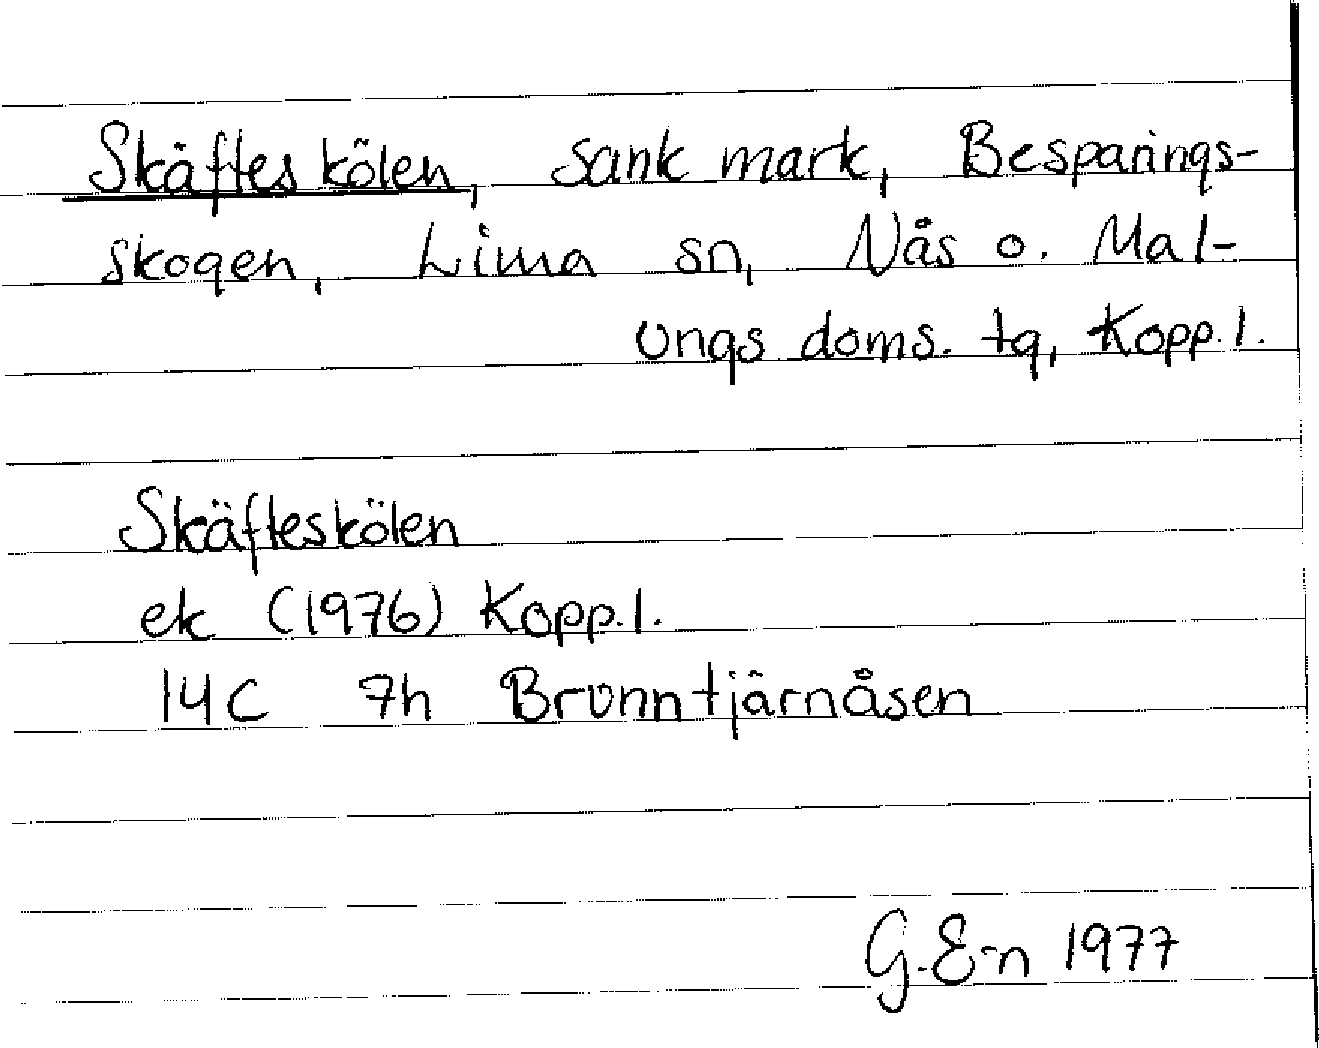 Skäfteskölen, sank mark, Besparings-
skogen, Lima sn, Nås o. Mal-
ungs doms. tg, Kopp. l.
Skäfteskölen
ek (1976) Kopp. l.
14C 7h Brunntjärnåsen
G. E-n 1977